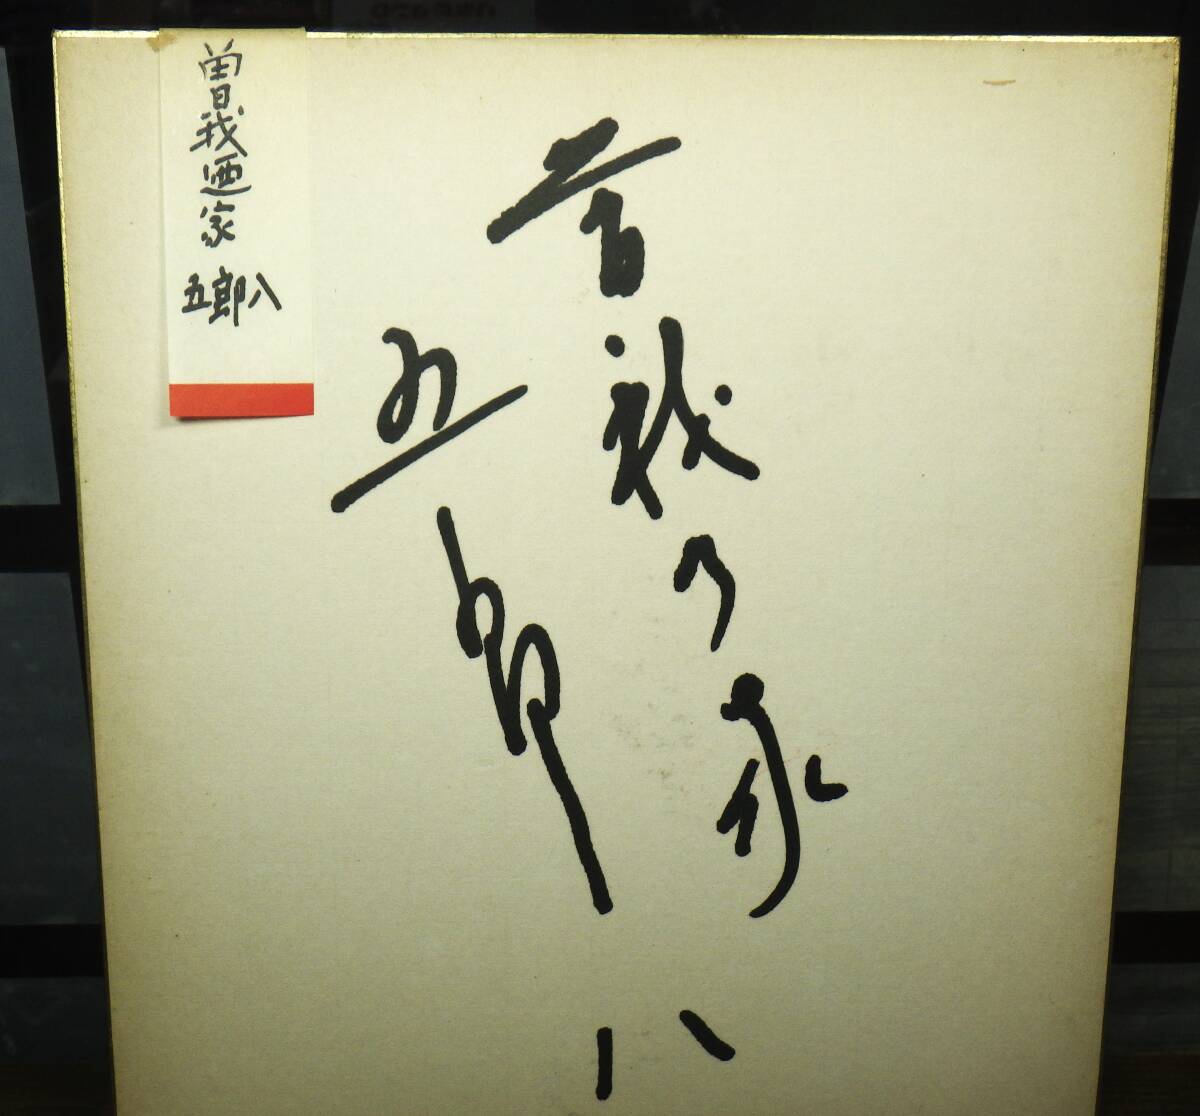 曽我廼家
五郎八
曽我乃家
五郎八